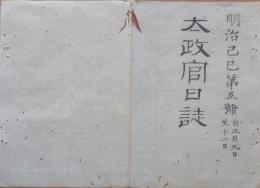 明治己巳第五號
自正月九日
至十二日
太政官日誌